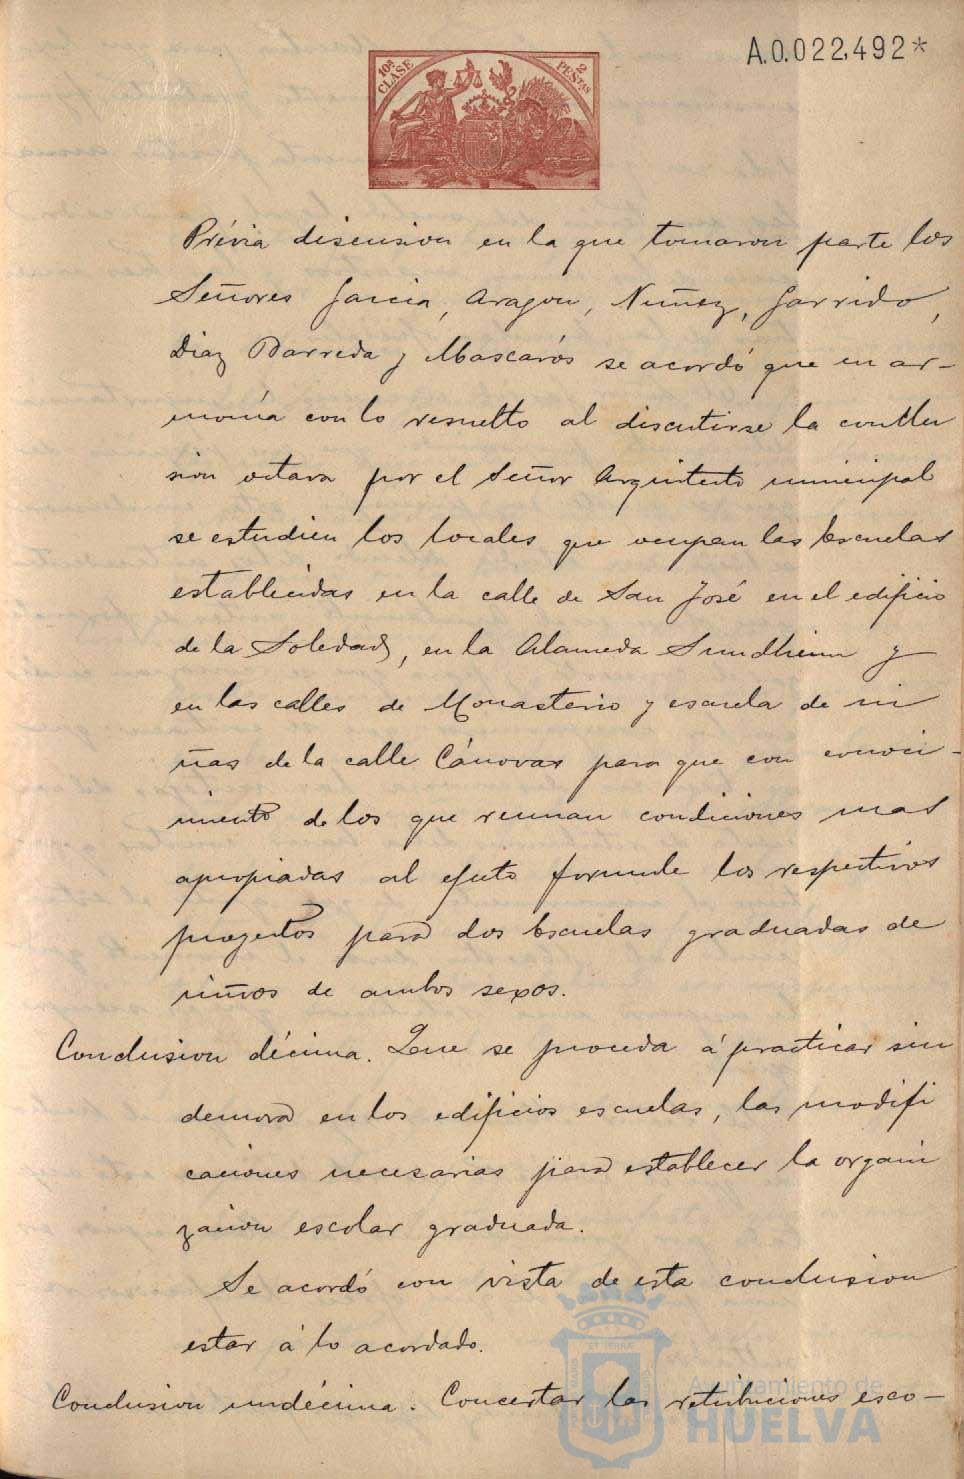 A.0.022,492*
10ª CLASE
2 PESETAS
Prévia discusion en la que tomaron parte los
Señores Garcia, Aragon, Nuñez, Garrido,
Diaz Barreda y Mascarós se acordó que en ar-
monía con lo resuelto al discutirse la conclu
sion octava por el Señor Arquitecto municipal
se estudien los locales que ocupan las Escuelas
establecidas en la calle de San José en el edificio
de la Soledad, en la Alameda Sundheim y
en las calles de Monasterio y escuela de ni
ñas de la calle Cánovas para que con conoci-
miento de los que reunan condiciones mas
apropiadas al efecto formule los respectivos
proyectos para dos Escuelas graduadas de
niños de ambos sexos.
Conclusion décima. Que se proceda á practicar sin
demora en los edificios escuelas, las modifi
caciones necesarias para establecer la organi
zacion escolar graduada.
Se acordó con vista de esta conclusion
estar á lo acordado.
Conclusion undécima. Concertar las retribuciones esco-
Ayuntamiento de
HUELVA